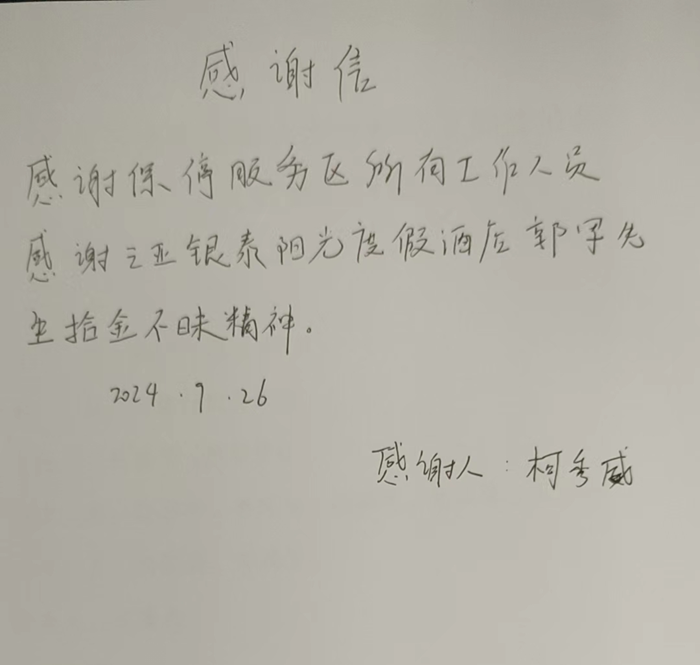 感谢信
感谢保停服务区所有工作人员
感谢三亚银泰阳光度假酒店郭军先
生拾金不昧精神。
2024.9.26
感谢人:柯秀威